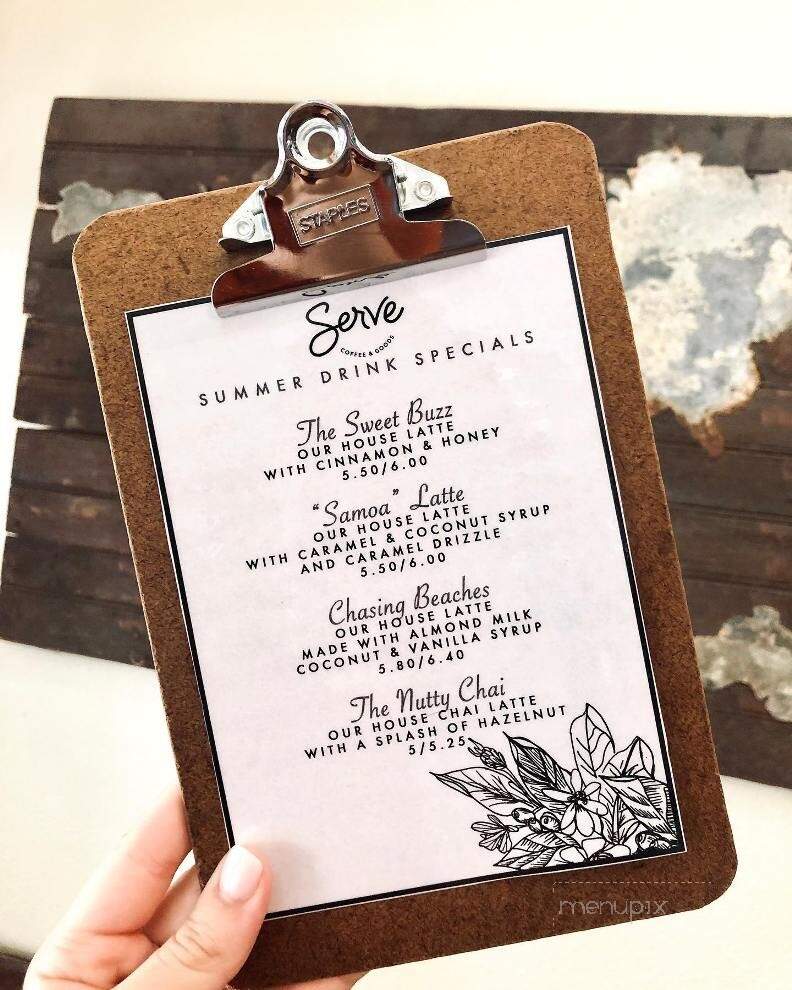 STAPLES
Serve
COFFEE & GOODS
SUMMER DRINK SPECIALS
The Sweet Buzz
OUR HOUSE LATTE
WITH CINNAMON & HONEY
5.50/6.00
"Samoa" Latte
OUR HOUSE LATTE
WITH CARAMEL & COCONUT SYRUP
AND CARAMEL DRIZZLE
5.50/6.00
Chasing Beaches
OUR HOUSE LATTE
MADE WITH ALMOND MILK
COCONUT & VANILLA SYRUP
5.80/6.40
The Nutty Chai
OUR HOUSE CHAI LATTE
WITH A SPLASH OF HAZELNUT
5/5.25
menupix